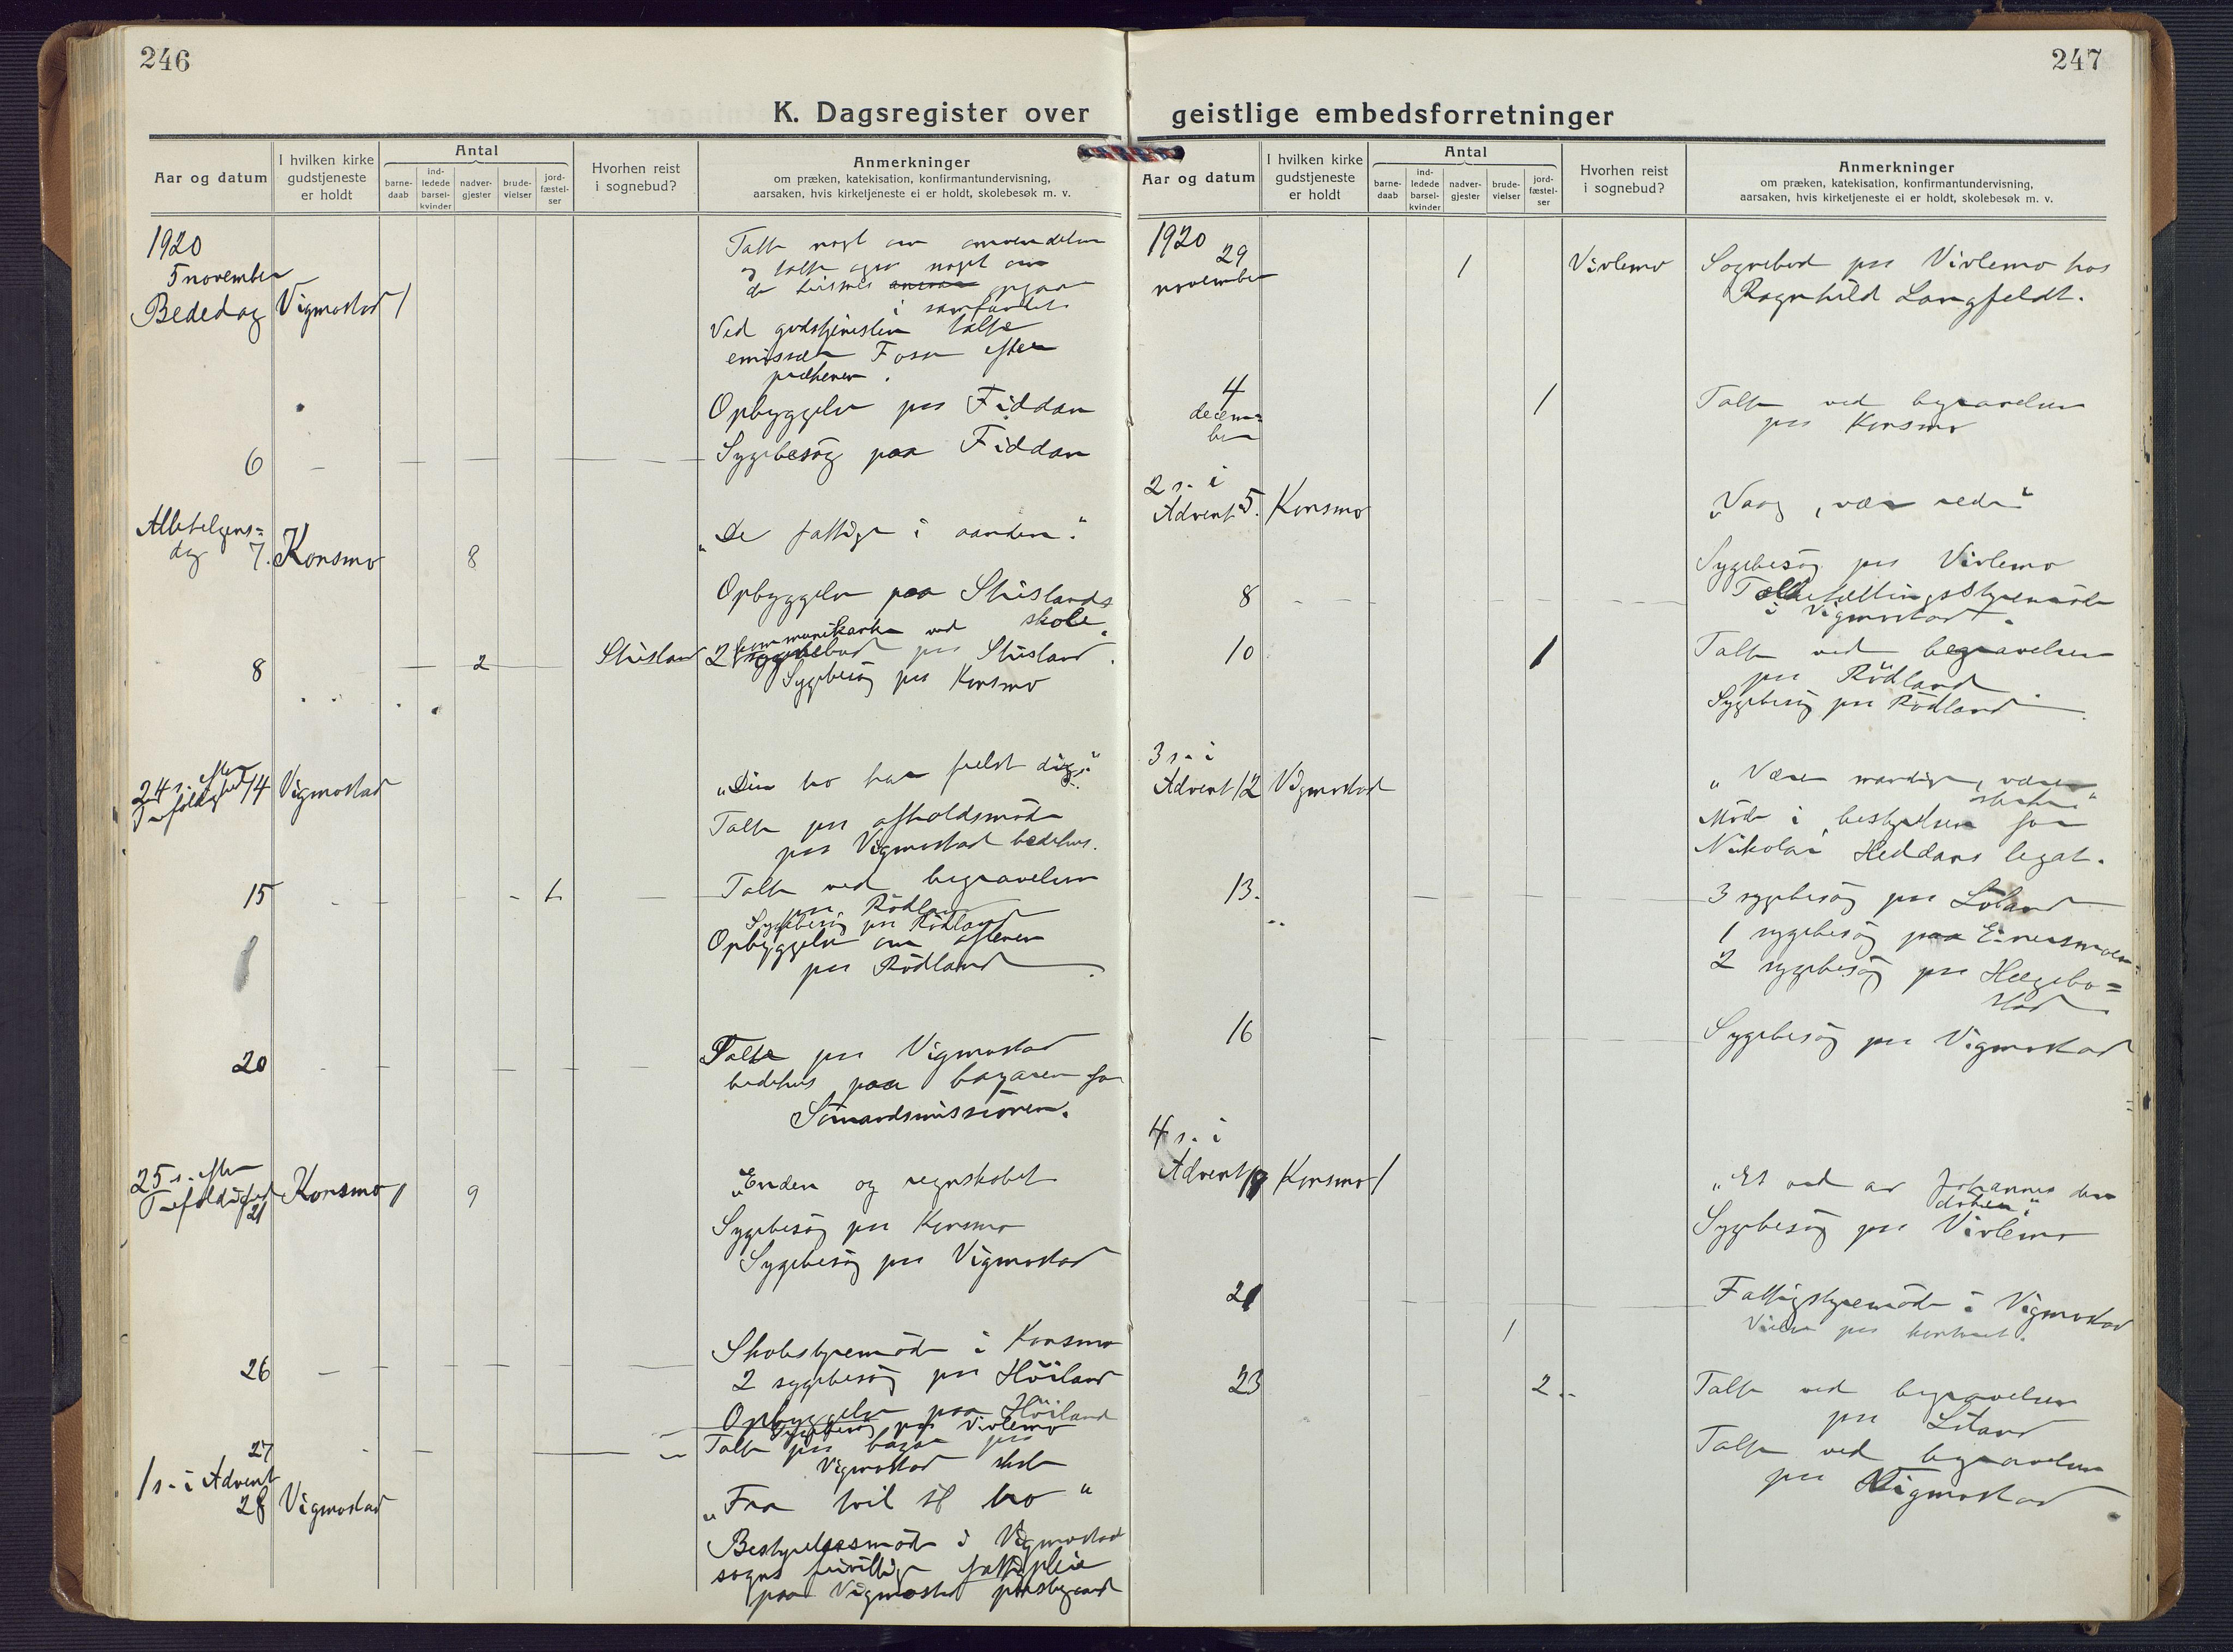 246
K. Dagsregister over
Aar og datum
I hvilken kirke
gudstjeneste
er holdt
Antal
barne-
daab
ind-
ledede
barsel-
kvinder
nadver-
gjester
brude-
vielser
jord-
fæstel-
ser
Hvorhen reist
i sognebud?
Anmerkninger
om præken, katekisation, konfirmantundervisning,
aarsaken, hvis kirketjeneste ei er holdt, skolebesøk m. v.
1920
5 november
Bededag Vigmostad 1
Talte noget om omvendelsen
og talte ogsaa noget om
i samfundet.
Ved gudstjenesten talte
emissær Foss efter
prækenen.
Opbyggelse paa Fiddan
6 Sygebesög paa Fiddan
Allehelgens=
dag 7. Konsmo 8 „De fattige i aanden."
Opbyggelse paa Stuslands
skole.
8 2 Stusland 2 kommunikanter ved sognebud paa Stusland.
Sygebesög paa Konsmo
24 s. efter
Trefoldighed 14 Vigmostad „Din tro har frelst dig."
Talte paa afholdsmöde
paa Vigmostad bedehus.
15 1 Talte ved begravelsen
paa Rödland
Sygebesög paa Rödland
Opbyggelse om aftenen
paa Rödland
20 Talte paa Vigmostad
bedehus paa basaren for
Sömandsmissionen.
25 s. efter
Trefoldighed
21 Konsmo 1 9 „Enden og regnskabet
Sygebesög paa Konsmo
Sygebesög paa Vigmostad
26 Skolestyremöde i Konsmo
2 sygebesög paa Höiland
Opbyggelse paa Höiland
Sygebesög paa Vivlemo
27 Talte paa basar paa
Vigmostad skole
1 s. i Advent
28 Vigmostad „Fra tvil til tro"
Bestyrelsesmöde i Vigmostad
sogns frivillige fattigpleie
paa Vigmostad prestegaard
247
geistlige embedsforretninger
Aar og datum
I hvilken kirke
gudstjeneste
er holdt
Antal
barne-
daab
ind-
ledede
barsel-
kvinder
nadver-
gjester
brude-
vielser
jord-
fæstel-
ser
Hvorhen reist
i sognebud?
Anmerkninger
om præken, katekisation, konfirmantundervisning,
aarsaken, hvis kirketjeneste ei er holdt, skolebesøk m. v.
1920
29
november 1 Vivlemo Sognebud paa Vivlemo hos
Ragnhild Langfeldt.
4
decem=
ber 1 Talte ved begravelsen
paa Konsmo
2 s. i
Advent 5. Konsmo „Vaag, vær rede"
Sygebesög paa Vivlemo
8 Folketællingsstyremöte
i Vigmostad.
10 1 Talte ved begravelsen
paa Rödland
Sygebesög paa Rödland
3 s. i
Advent 12 Vigmostad „Vær mandige, vær
sterke"
Möde i bestyrelsen for
Nikolai Heddans legat.
13. 3 sygebesög paa Löland
1 sygebesög paa Einersmoen.
2 sygebesög paa Hægebo=
stad
16 Sygebesög paa Vigmostad
4 s. i
Advent 19 Konsmo 1 „Et ord av Johannes den
döber."
Sygebesög paa Vivlemo
21 Fattigstyremöde i Vigmostad
1 Vielse paa kontoret.
23 2 Talte ved begravelsen
paa Löland
Talte ved begravelsen
paa Vigmostad